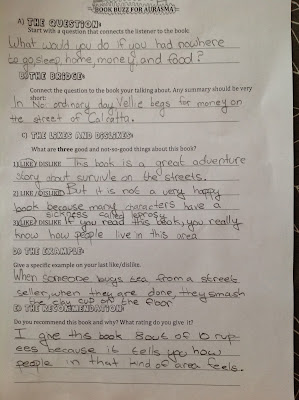 BOOK BUZZ FOR AURASMA
A) THE QUESTION:
Start with a question that connects the listener to the book:
What would you do if you had nowhere
to go, sleep, home, money, and food?
B) THE BRIDGE:
Connect the question to the book your talking about. Any summary should be very
short:
In No ordinary day Vallie begs for money on
the street of Calcatta.
C) THE LIKES AND DISLIKES:
What are three good and not-so-good things about this book?
1) LIKE / DISLIKE This book is a great adventure
story about survivle on the streets.
2) LIKE / DISLIKE But it is not a very happy
book because many characters have a
sickness called leprosy
3) LIKE / DISLIKE If you read this book, you really
know how people live in this area
D) THE EXAMPLE:
Give a specific example on your last like/dislike.
When someone buys tea from a street
seller, when they are done, they smash
the clay cup on the floor
E) THE RECOMMENDATION:
Do you recommend this book and why? What rating do you give it?
I give this book 8 out of 10 rup-
ees because it tells you how
people in that kind of area feels.